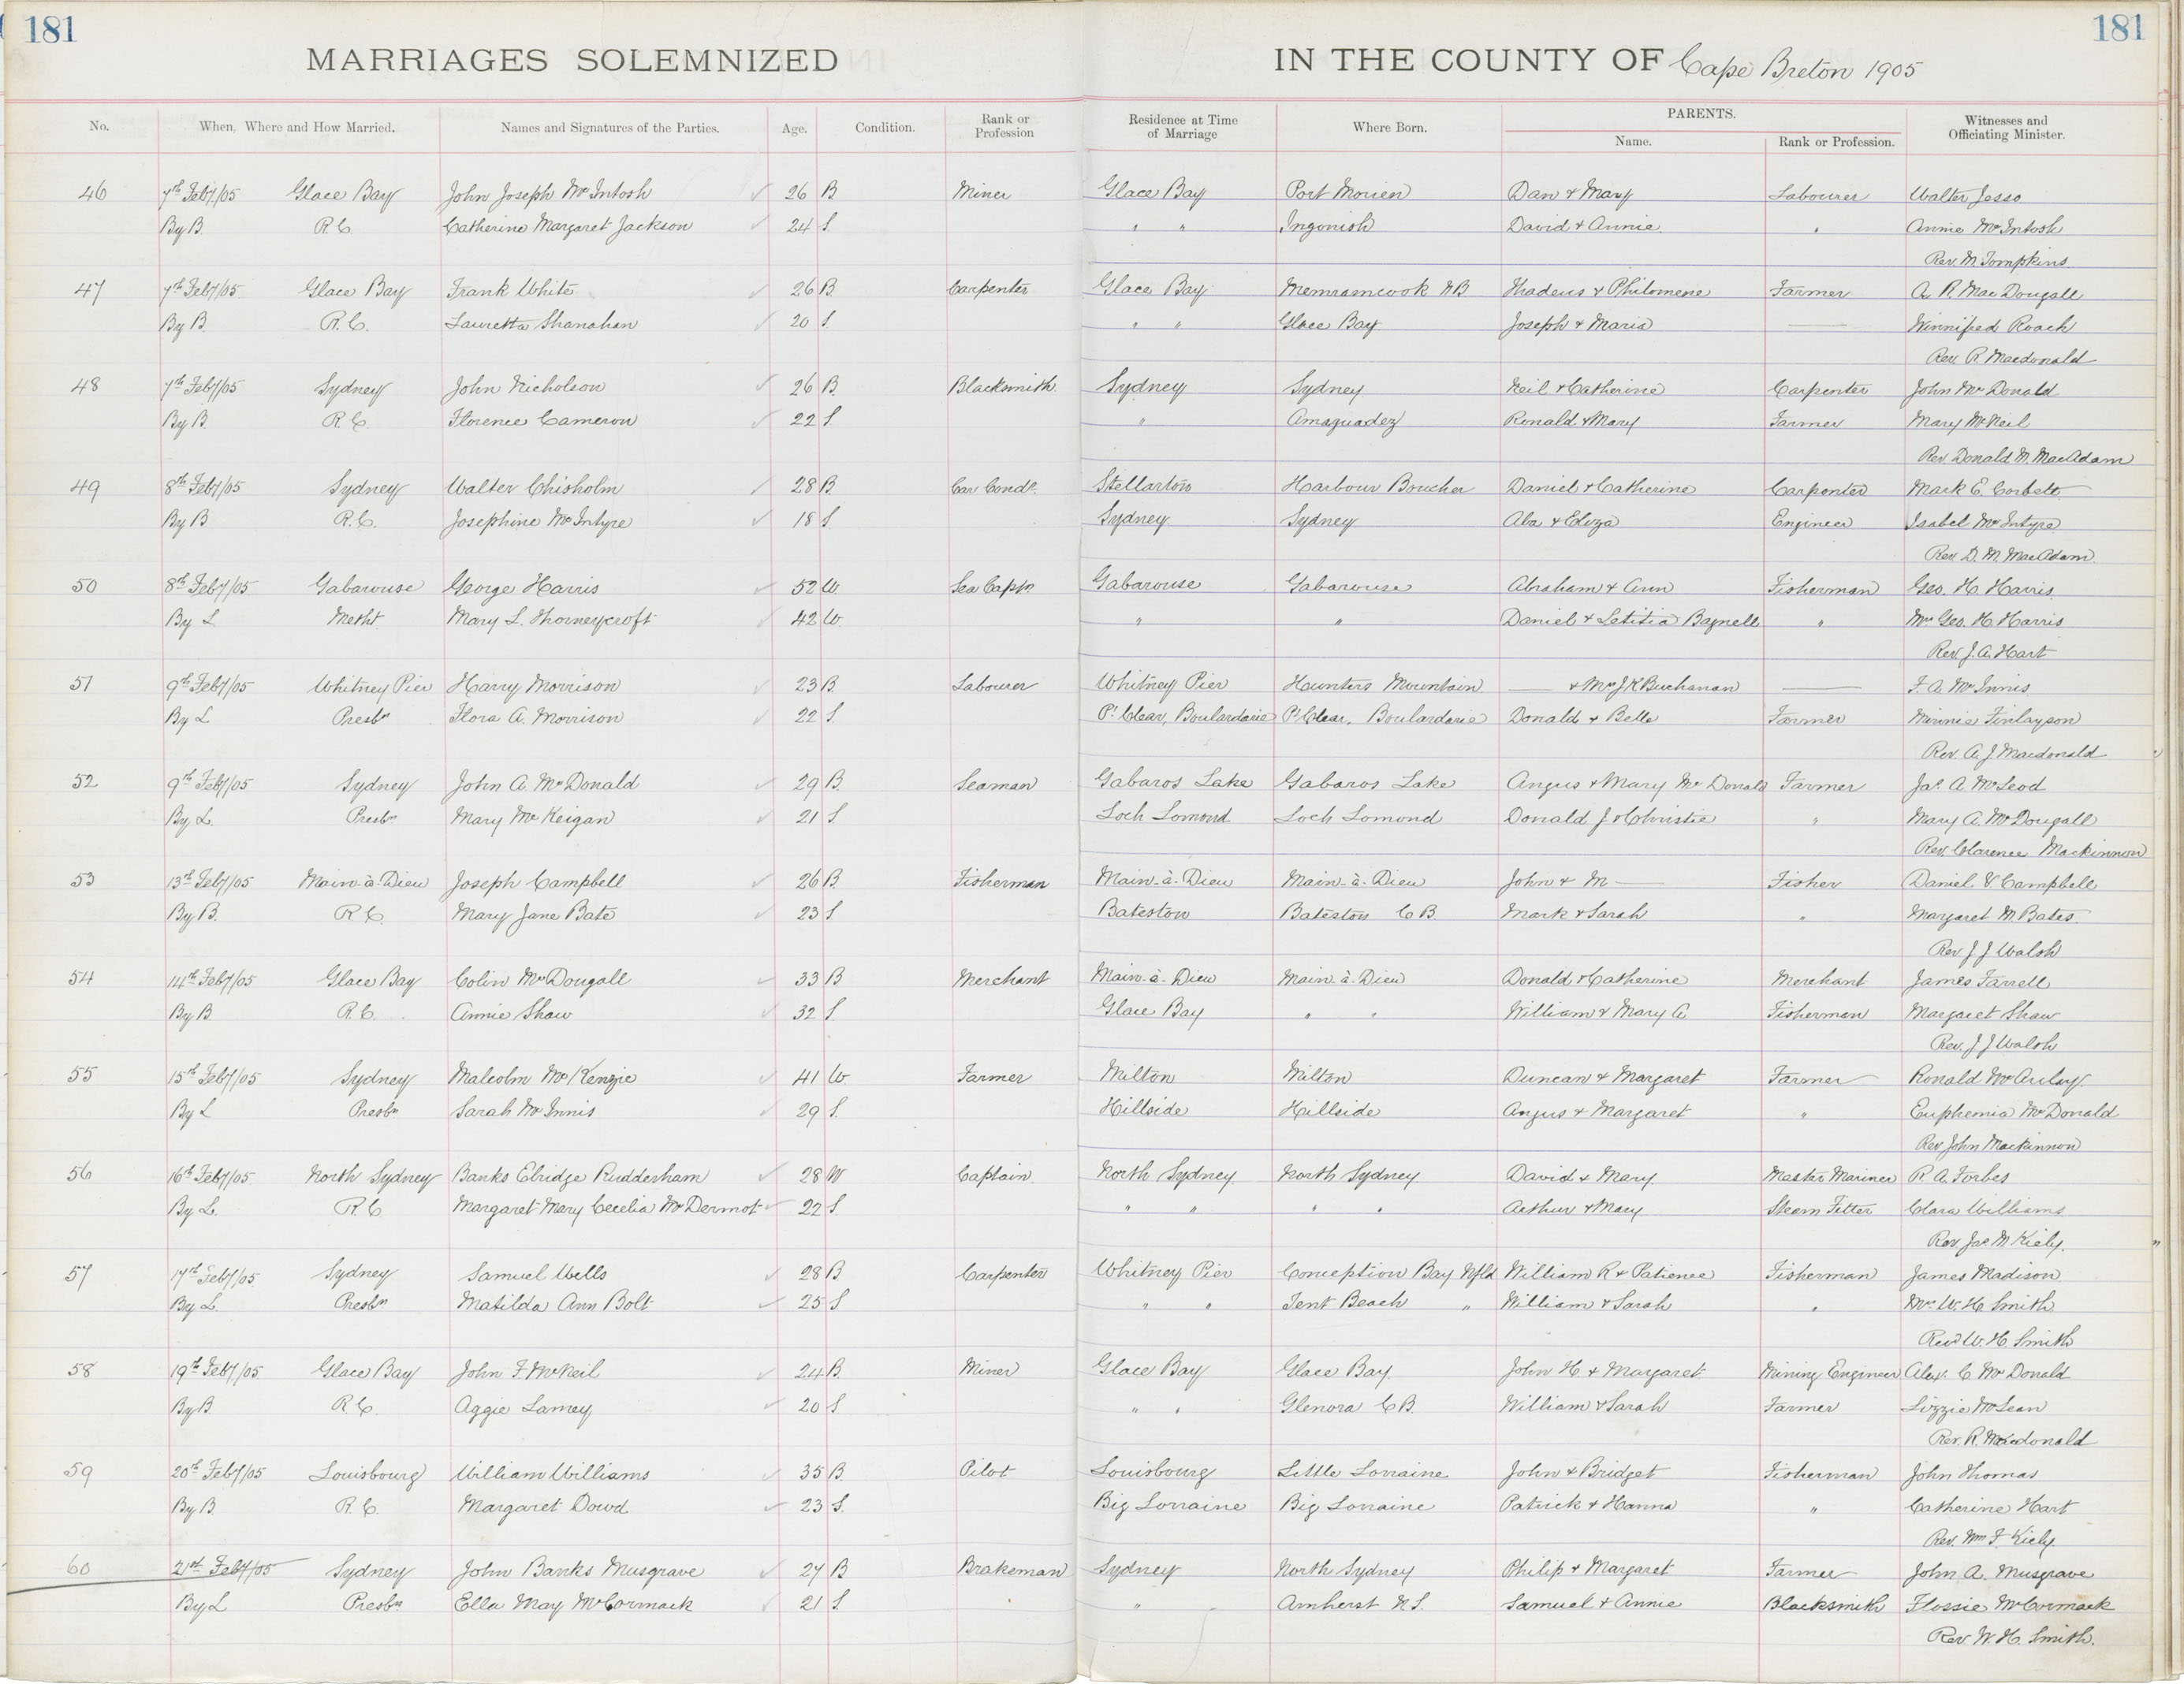 181 181
MARRIAGES SOLEMNIZED IN THE COUNTY OF Cape Breton 1905
No. When, Where and How Married. Names and Signatures of the Parties. Age. Condition. Rank or Profession Residence at Time of Marriage Where Born. PARENTS. Name. Rank or Profession. Witnesses and Officiating Minister.
46 7th Feby/05 Glace Bay John Joseph McIntosh 26 B Miner Glace Bay Port Morien Dan & Mary Labourer Walter Jesso
By B R.C. Catherine Margaret Jackson 24 S. " " Ingonish David & Annie " Annie McIntosh
Rev. M Tompkins
47 7th Feby/05 Glace Bay Frank White 26 B. Carpenter Glace Bay Memramcook NB Thadeus & Philomene Farmer A. R. MacDougall
By B. R.C. Lauretta Shanahan 20 S. " " Glace Bay Joseph & Maria — Winnifred Roach
Rev. R. Macdonald
48 7th Feby/05 Sydney John Nicholson 26 B. Blacksmith. Sydney Sydney Neil & Catherine Carpenter John McDonald
By B R.C. Florence Cameron 22 S. " Amaguadez Ronald & Mary Farmer Mary McNeil
Rev. Donald M. MacAdam
49 8th Feby/05 Sydney Walter Chisholm 28 B. Car Condr. Stellarton Harbour Boucher Daniel & Catherine Carpenter Mark E. Corbett
By B R.C. Josephine McIntyre 18 S. Sydney Sydney Aba & Eliza Engineer Isabel McIntyre
Rev. D. M. MacAdam
50 8th Feby/05 Gabarouse George Harris 52 W. Sea Captn Gabarouse Gabarouse Abraham & Ann Fisherman Geo. H. Harris
By L Metht. Mary L. Thorneycroft 42 W " " Daniel & Letitia Bagnell " Mrs Geo. H. Harris
Rev. J. A. Hart
51 9th Feby/05 Whitney Pier Harry Morrison 23 B. Labourer Whitney Pier Hunters Mountain — & Mrs J K Buchanan — F. A. McInnis
By L Presbn Flora A. Morrison 22 S. Pt Clear, Boulardarie Pt Clear, Boulardarie Donald & Belle Farmer Minnie Finlayson
Rev. A. J Macdonald
52 9th Feby/05 Sydney John A. McDonald 29 B. Seaman Gabaros Lake Gabaros Lake Angus & Mary McDonald Farmer Jas. A. McLeod
By L. Presbn Mary McKeigan 21 S. Loch Lomond Loch Lomond Donald J. & Christie " Mary A. McDougall
Rev. Clarence Mackinnon
53 13th Feby/05 Main-à-Dieu Joseph Campbell 26 B. Fisherman Main-à-Dieu Main-à-Dieu John & M— Fisher Daniel V Campbell
By B. R C. Mary Jane Bate 23 S Bateston Bateston C B. Mark & Sarah " Margaret M. Bates
Rev. J J Walsh
54 14th Feby/05 Glace Bay Colin McDougall 33 B Merchant Main-à-Dieu Main-à-Dieu Donald & Catherine Merchant James Farrell
By B R.C. Annie Shaw 32 S Glace Bay " " William & Mary A. Fisherman Margaret Shaw
Rev. J J Walsh
55 15th Feby/05 Sydney Malcolm McKenzie 41 W. Farmer Milton Milton Duncan & Margaret Farmer Ronald McAulay
By L Presbn Sarah McInnis 29 S. Hillside Hillside Angus & Margaret " Euphemia McDonald
Rev John Mackinnon
56 16th Feby/05 North Sydney Banks Elridge Rudderham 28 W Captain. North Sydney North Sydney David & Mary Master Mariner R. A. Forbes
By L. R.C Margaret Mary Cecelia McDermot 22 S. " " " " Arthur & Mary Steam Fitter Clara Williams
Rev. Jas M Kiely.
57 17th Feby/05 Sydney Samuel Wells 28 B Carpenter Whitney Pier Conception Bay Nfld William R & Patience Fisherman James Madison
By L. Presbn Matilda Ann Bolt 25 S " " Tent Beach " William & Sarah " Mrs W. H. Smith
Revd W. H. Smith
58 19th Feby/05 Glace Bay John F. McNeil 24 B. Miner Glace Bay Glace Bay John H. & Margaret Mining Engineer Alex. C. McDonald
By B. R C. Aggie Lamey 20 S " " Glenora C B. William & Sarah Farmer Lizzie McLean
Rev. R. Macdonald
59 20th Feby/05 Louisbourg William Williams 35 B. Pilot Louisbourg Little Lorraine John & Bridget Fisherman John Thomas
By B. R. C. Margaret Dowd 23 S. Big Lorraine Big Lorraine Patrick & Hanna " Catherine Hart
Rev. Wm F. Kiely
60 21st Feby/05 Sydney John Banks Musgrave 27 B Brakeman Sydney North Sydney Philip & Margaret Farmer John A. Musgrave
By L Presbn Ella May McCormack 21 S. " Amherst N.S. Samuel & Annie Blacksmith Flossie McCormack
Rev. W. H. Smith.